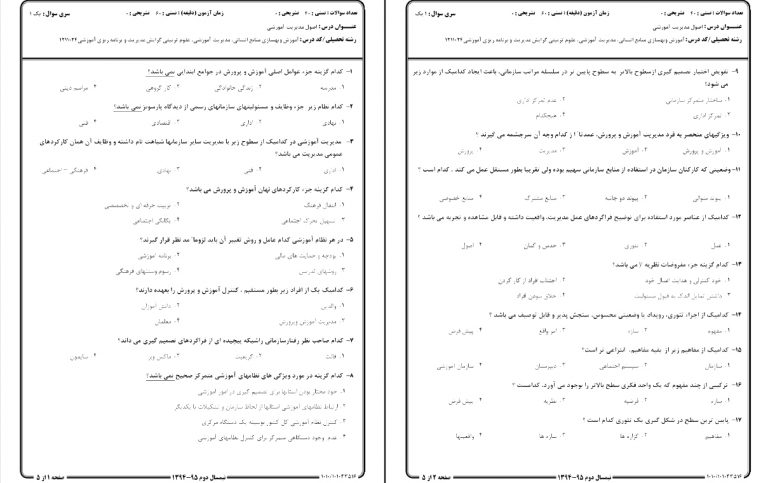 تعداد سوالات : تستی : ۶۰ تشریحی : ۰
زمان آزمون (دقیقه) : تستی : ۶۰ تشریحی : ۰
سری سوال : ۱ یک
عنـــوان درس : اصول مدیریت آموزشی
رشته تحصیلی/کد درس : آموزش وبهسازی منابع انسانی، مدیریت آموزشی، علوم تربیتی گرایش مدیریت و برنامه ریزی آموزشی ۱۲۱۱۰۲۴
۱- کدام گزینه جزء عوامل اصلی آموزش و پرورش در جوامع ابتدایی نمی باشد؟
۱. مدرسه ۲. زندگی خانوادگی ۳. کار گروهی ۴. مراسم دینی
۲- کدام نظام زیر جزء وظایف و مسئولیتهای سازمانهای رسمی از دیدگاه پارسونز نمی باشد؟
۱. نهادی ۲. اداری ۳. اقتصادی ۴. فنی
۳- مدیریت آموزشی در کدامیک از سطوح زیر با مدیریت سایر سازمانها شباهت تام داشته و وظایف آن همان کارکردهای
عمومی مدیریت می باشد؟
۱. اداری ۲. فنی ۳. نهادی ۴. فرهنگی - اجتماعی
۴- کدام گزینه جزء کارکردهای نهان آموزش و پرورش می باشد؟
۱. انتقال فرهنگ ۲. تربیت حرفه ای و تخصصی
۳. تسهیل تحرک اجتماعی ۴. یگانگی اجتماعی
۵- در هر نظام آموزشی کدام عامل و روش تغییر آن باید لزوما مد نظر قرار گیرند؟
۱. بودجه و حمایت های مالی ۲. برنامه آموزشی
۳. روشهای تدریس ۴. رسوم وسنتهای فرهنگی
۶- کدامیک یک از افراد زیر بطور مستقیم ، کنترل آموزش و پرورش را بعهده دارند؟
۱. والدین ۲. دانش آموزان
۳. مدیریت آموزش وپرورش ۴. معلمان
۷- کدام صاحب نظر رفتارسازمانی راشبکه پیچیده ای از فراگردهای تصمیم گیری می داند؟
۱. فالت ۲. گریفیث ۳. ماکس وبر ۴. سایمون
۸- کدام گزینه در مورد ویژگی های نظامهای آموزشی متمرکز صحیح نمی باشد؟
۱. خود مختار بودن استانها برای تصمیم گیری در امور آموزشی
۲. ارتباط نظامهای آموزشی استانها از لحاظ سازمان و تشکیلات با یکدیگر
۳. کنترل نظام آموزشی کل کشور بوسیله یک دستگاه مرکزی
۴. عدم وجود دستگاهی متمرکز برای کنترل نظامهای آموزشی
نیمسال دوم ۹۵-۱۳۹۴
صفحه ۱ از ۵
تعداد سوالات : تستی : ۶۰ تشریحی : ۰
زمان آزمون (دقیقه) : تستی : ۶۰ تشریحی : ۰
سری سوال : ۱ یک
عنـــوان درس : اصول مدیریت آموزشی
رشته تحصیلی/کد درس : آموزش وبهسازی منابع انسانی، مدیریت آموزشی، علوم تربیتی گرایش مدیریت و برنامه ریزی آموزشی ۱۲۱۱۰۲۴
۹- تفویض اختیار تصمیم گیری ازسطوح بالاتر به سطوح پایین تر در سلسله مراتب سازمانی، باعث ایجاد کدامیک از موارد زیر
می شود؟
۱. ساختار متمرکز سازمانی ۲. عدم تمرکز اداری
۳. تمرکز اداری ۴. هیچکدام
۱۰- ویژگیهای منحصر به فرد مدیریت آموزش و پرورش، عمدتا از کدام وجه آن سرچشمه می گیرند ؟
۱. آموزش و پرورش ۲. آموزش ۳. مدیریت ۴. پرورش
۱۱- وضعیتی که کارکنان سازمان در استفاده از منابع سازمانی سهیم بوده ولی تقریبا بطور مستقل عمل می کند ، کدام است ؟
۱. پیوند متوالی ۲. پیوند دو جانبه ۳. منابع مشترک ۴. منابع خصوصی
۱۲- کدامیک از عناصر مورد استفاده برای توضیح فراگردهای عمل مدیریت، واقعیت داشته و قابل مشاهده و تجربه می باشد ؟
۱. عمل ۲. تئوری ۳. حدس و گمان ۴. اصول
۱۳- کدام گزینه جزء مفروضات نظریه Y می باشد؟
۱. خود کنترلی و هدایت اعمال خود ۲. اجتناب افراد از کار کردن
۳. داشتن تمایل اندک به قبول مسئولیت ۴. خلاق نبودن افراد
۱۴- کدامیک از اجزاء تئوری، رویداد یا وضعیتی محسوس، سنجش پذیر و قابل توصیف می باشد ؟
۱. مفهوم ۲. سازه ۳. امر واقع ۴. پیش فرض
۱۵- کدامیک از مفاهیم زیر از بقیه مفاهیم، انتزاعی تر است؟
۱. سازمان ۲. سیستم اجتماعی ۳. دبیرستان ۴. سازمان آموزشی
۱۶- ترکیبی از چند مفهوم که یک واحد فکری سطح بالاتر را بوجود می آورد، کدامست ؟
۱. سازه ۲. فرضیه ۳. نظریه ۴. پیش فرض
۱۷- پایین ترین سطح در شکل گیری یک تئوری کدام است ؟
۱. مفاهیم ۲. گزاره ها ۳. سازه ها ۴. واقعیتها
نیمسال دوم ۹۵-۱۳۹۴
صفحه ۲ از ۵